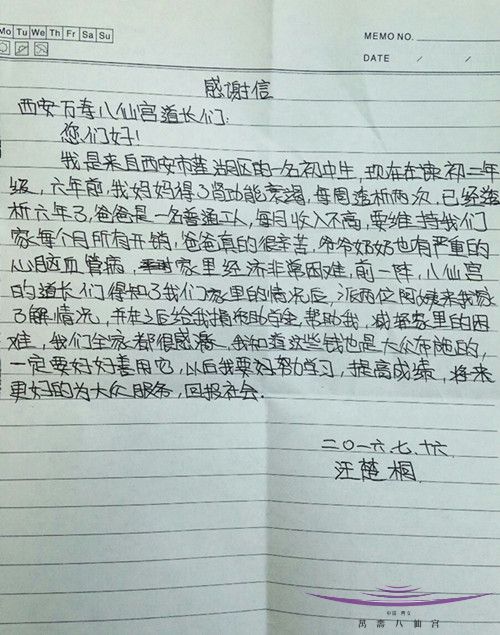 Mo Tu We Th Fr Sa Su
MEMO NO.
DATE / /
感谢信
西安万寿八仙宫道长们:
您们好!
我是来自西安市莲湖区的一名初中生,现在在读初二年
级,六年前,我妈妈得了肾功能衰竭,每周透析两次,已经透
析六年了,爸爸是一名普通工人,每月收入不高,要维持我们
家每个月所有开销,爸爸真的很辛苦,爷爷奶奶也有严重的
心脑血管病,家里经济非常困难,前一阵,八仙宫
的道长们得知了我们家里的情况后,派两位阿姨来我家
了解情况,并在之后给我捐术助学金,帮助我,减轻家里的困
难,我们全家都很感激,我知道这些钱也是大众布施的,
一定要好好善用它,以后我要好好努力学习,提高成绩,将来
更好的为大众服务,回报社会.
二〇一六.七.十六
汪楚桐
中国 西安
萬壽八仙宮